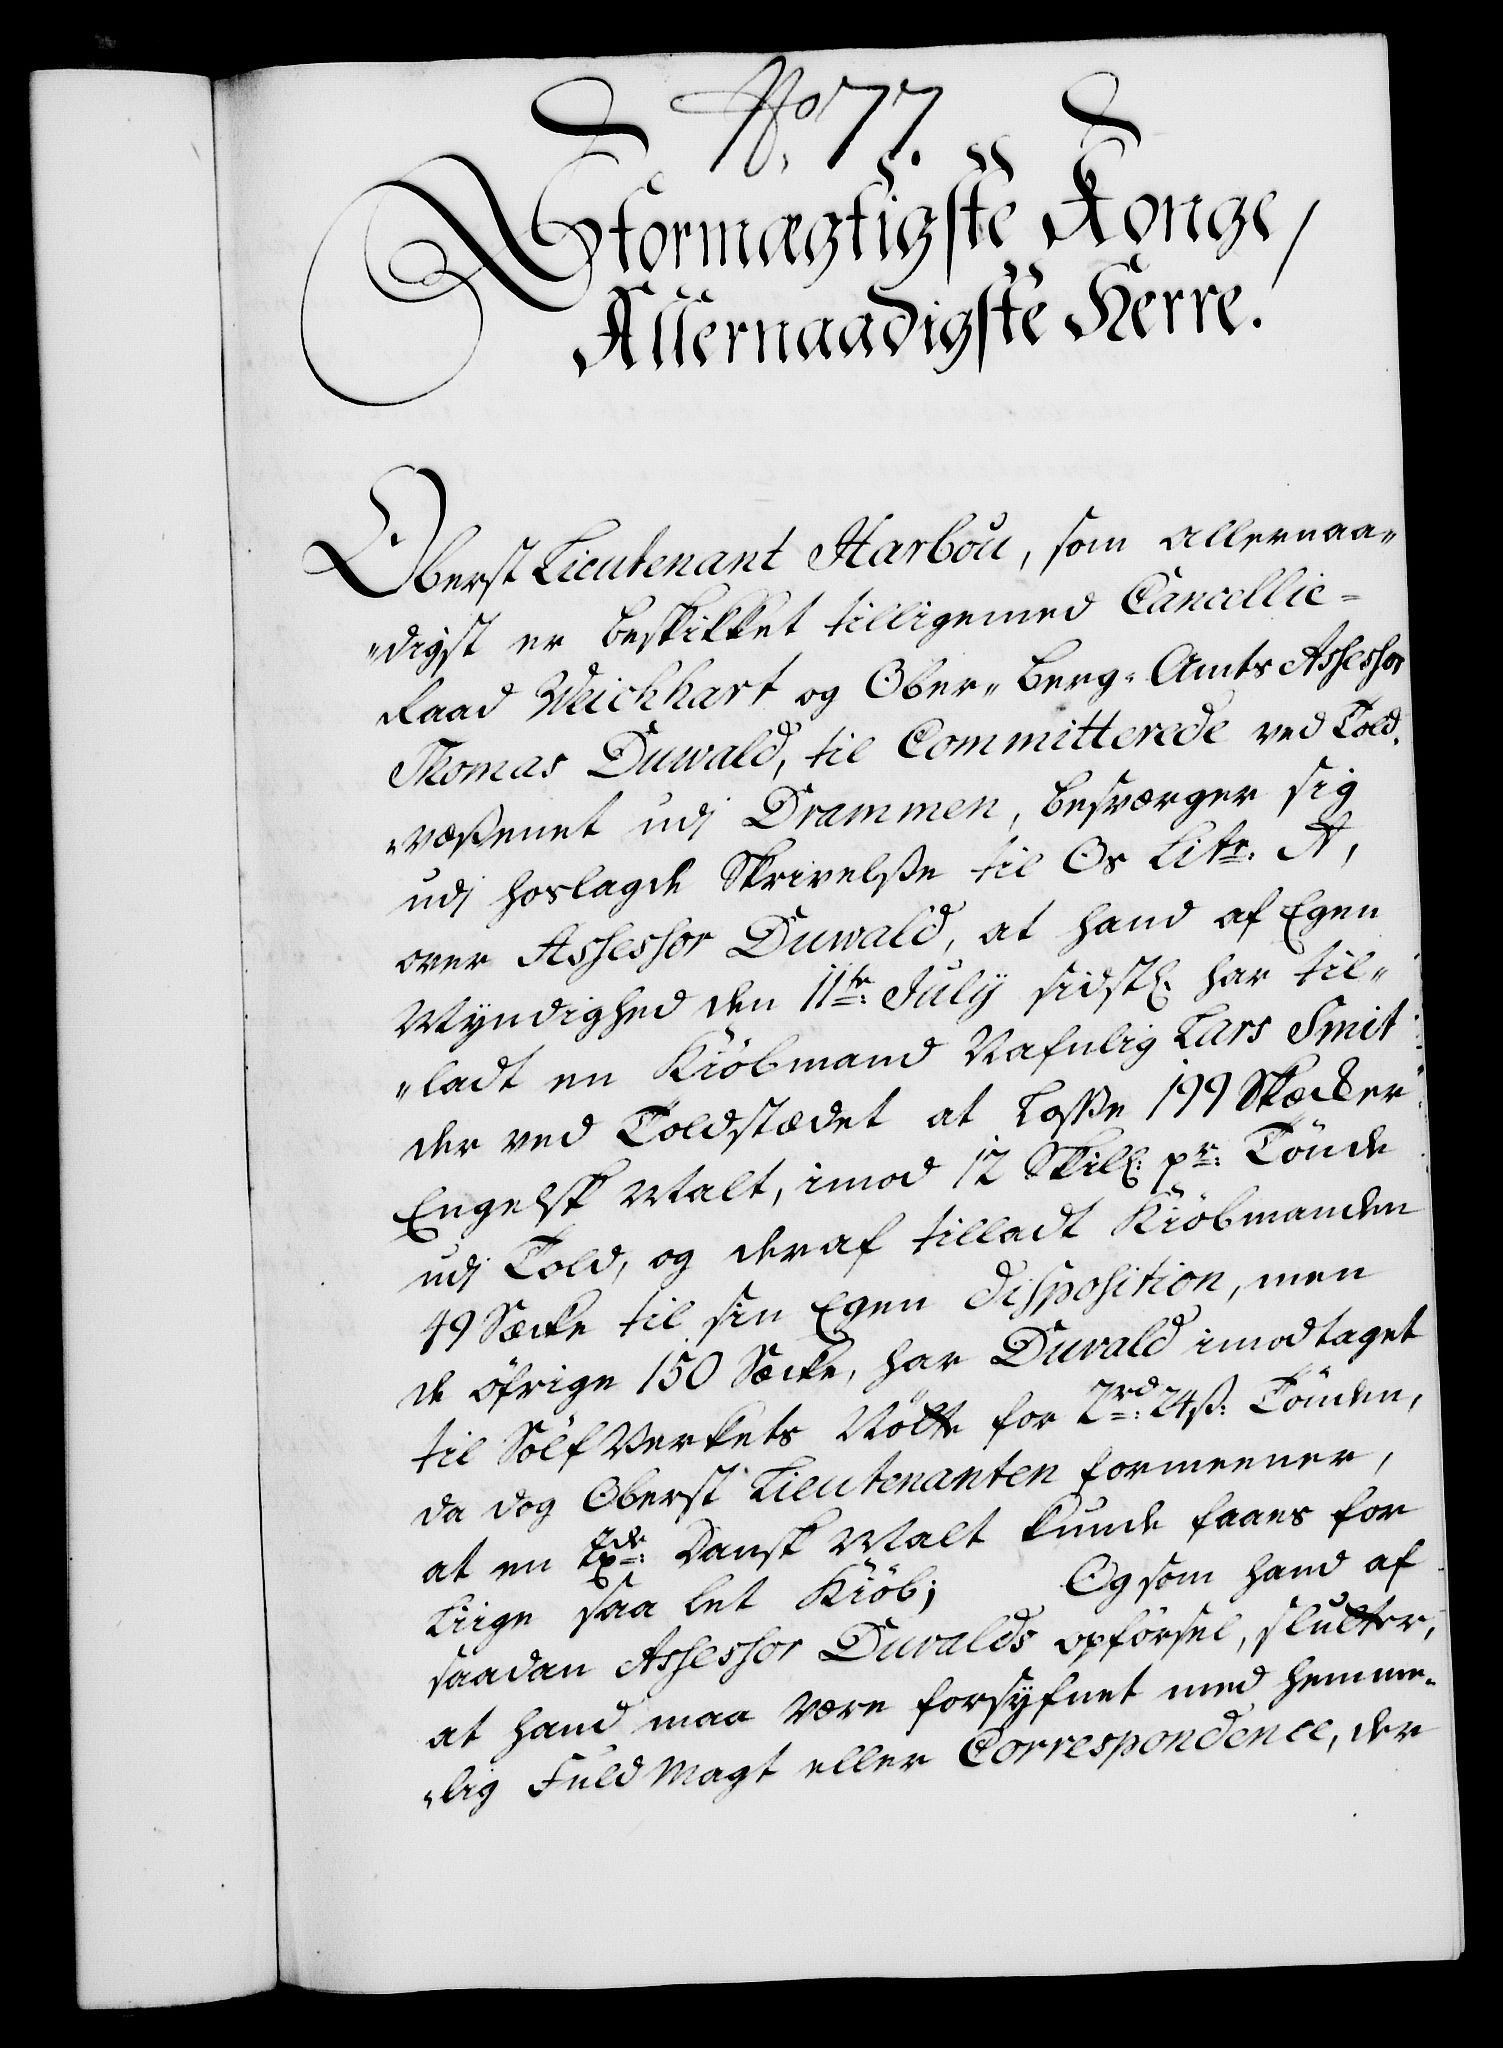 No. 77.
Stormægtigste Konge,
Allernaadigste Herre.
Oberst Lieutenant Harbou, som allernaa„
„digst er beskikket tilligemed Cancellie=
Raad Weichhart og Ober„Berg=Amts Assessor
Thomas Duwald, til Committerede ved Told„
„væßenet udj Drammen, besværger sig
udj hoslagde Skrivelße til Os Litr. A,
over Assessor Duwald, at hand af Egen
Myndighed den 11te July sidstl. har til„
„ladt en Kiöbmand Nafnlig Lars Smit
der ved Toldstædet at Loße 199 Skæcker
Engelsk Malt, imod 12 Skill. pr. Tönde
udj Told, og deraf tilladt Kiöbmanden
49 Sæcke til sin Egen disposition, men
de öfrige 150 Sæcke, har Duvald imodtaget
til Sölf Verkets Nötte for 2rd. 24ß. Tönden,
da dog Oberst Lieutenanten formeener,
at en Tde. Dansk Malt kunde faaes for
Liige saa let Kiöb; Og som hand af
saadan Assessor Duvalds opförsel, slutter,
at hand maa være forsyfnet med hemme„
„lig Fuldmagt eller Correspondence, der